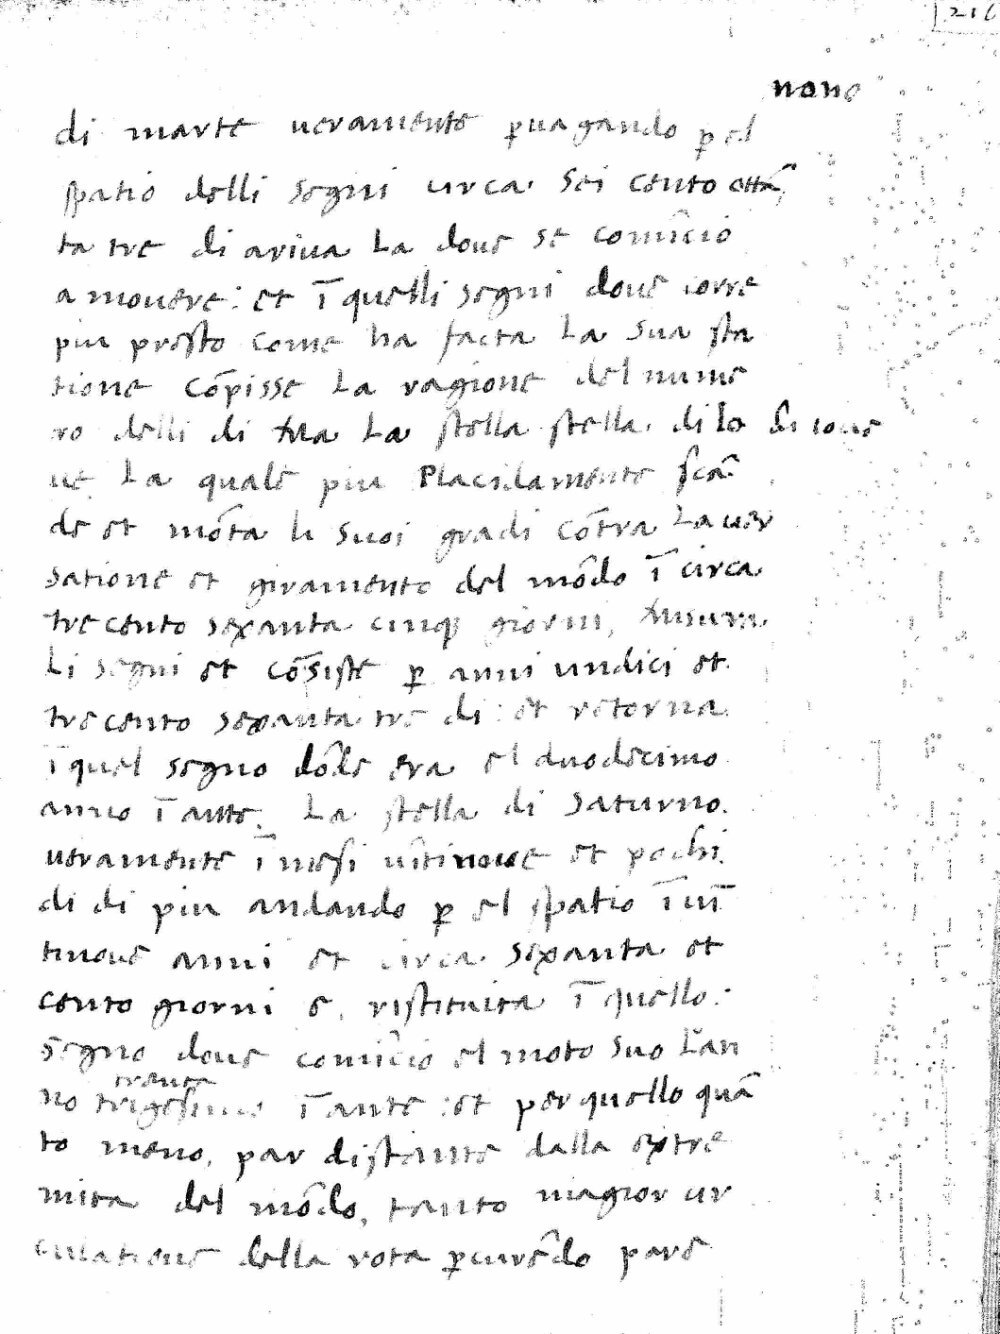 216
nono
di marte ueramente p̱uagando p̱ el
spatio delli segni circa sei cento ottā
ta tre di ariua La doue se comīcio
a mouere: et ī quelli segni doue corre
piu presto come ha facta La sua sta
tione cōpisse La ragione del nume
ro delli di ma La stella stella di Io di ioue
ue La quale piu Placidamente scā
de et mōta li suoi gradi cōtra La uer
satione et giramento del mōdo ī circa
tre cento sexanta cinq giorni, misura
Li segni et cōsiste p̱ anni undici et
tre cento sexanta tre di: et retorna
ī quel segno dōde era el duodecimo
anno ī ante. La stella di saturno.
ueramente ī mesi uītinoue et pochi
di di piu andando p̱ el spatio ī uī
tinoue anni et circa sexanta et
cento giorni e ristituita ī quello:
segno doue comīcio el moto suo Lan
trenta
no trigesimo ī ante: et per quello quā
to meno, par distante dalla extre
mita del mōdo, tanto magior cir
culatione della rota p̱currēdo pare